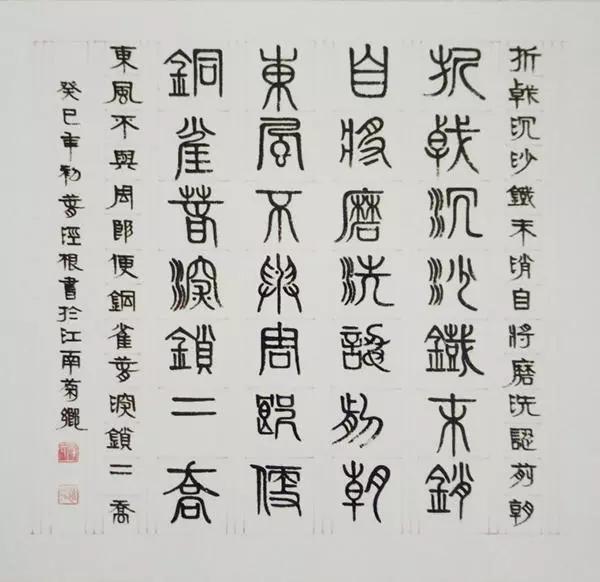 折戟沉沙鐵未消自將磨洗認前朝
折戟沉沙鐵未銷
自將磨洗認前朝
東風不與周郎便
銅雀春深鎖二喬
東風不與周郎便銅雀春深鎖二喬
癸巳年初春涇根書於江南菊鄉